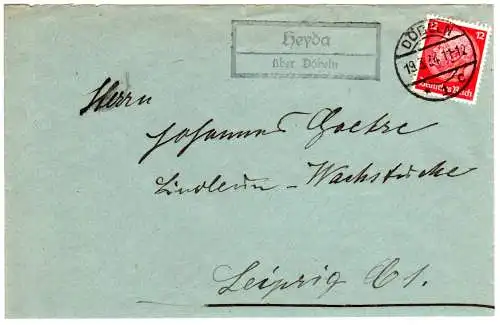 Heyda
über Döbeln
DÖBELN
12
Deutsches Reich
Herrn
Johannes Goetze
Linoleum - Wachstuche
Leipzig C1.